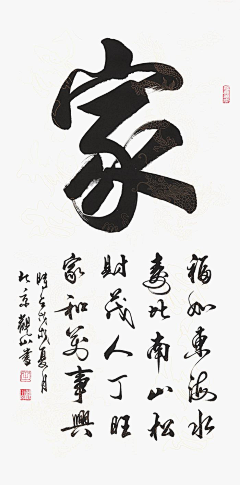 家
福如东海水
寿比南山松
财茂人丁旺
家和万事興
時在戊戌夏月
北京觀山書